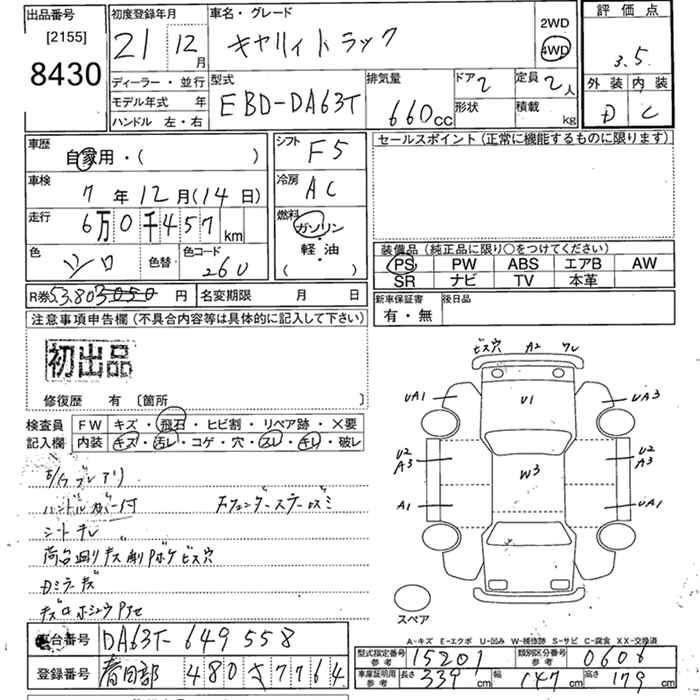 出品番号
[2155]
8430
初度登録年月
21 12月
ディーラー・並行
モデル年式 年
ハンドル 左・右
車名・グレード
キャリィトラック
2WD
4WD
型式
EBD-DA63T
排気量
660cc
ドア 2
形状
定員 2人
積載 kg
評価点
3.5
外装 内装
D C
車歴
自家用・( )
車検
7年12月(14日)
走行
6万0千457km
色
シロ
色替
色コード
26U
シフト
F5
冷房
AC
燃料
ガソリン
・
軽・油
( )
セールスポイント(正常に機能するものに限ります)
装備品(純正品に限り○をつけてください)
PS PW ABS エアB AW
SR ナビ TV 本革
新車保証書
有・無
後日品
R券 円
名変期限 月 日
注意事項申告欄(不具合内容等は具体的に記入して下さい)
初出品
修復歴 有〔箇所 〕
検査員
記入欄
FW キズ・飛石・ヒビ割・リペア跡・×要
内装 キズ・汚レ・コゲ・穴・スレ・キレ・破レ
シートキレ
Dミラーキズ
ビス穴 A2 ワレ
UA1 U1 UA3
U2
A3
W3
U2
A3
A1 UA1
スペア
A-キズ E-エクボ U-凹み W-補修跡 S-サビ C-腐食 XX-交換済
車台番号 DA63T-649558
登録番号 春日部 480 さ 7764
型式指定番号
参考
15201
類別区分番号
参考
0606
車庫証明用
参考
長さ 339cm 幅 147cm 高さ 179cm